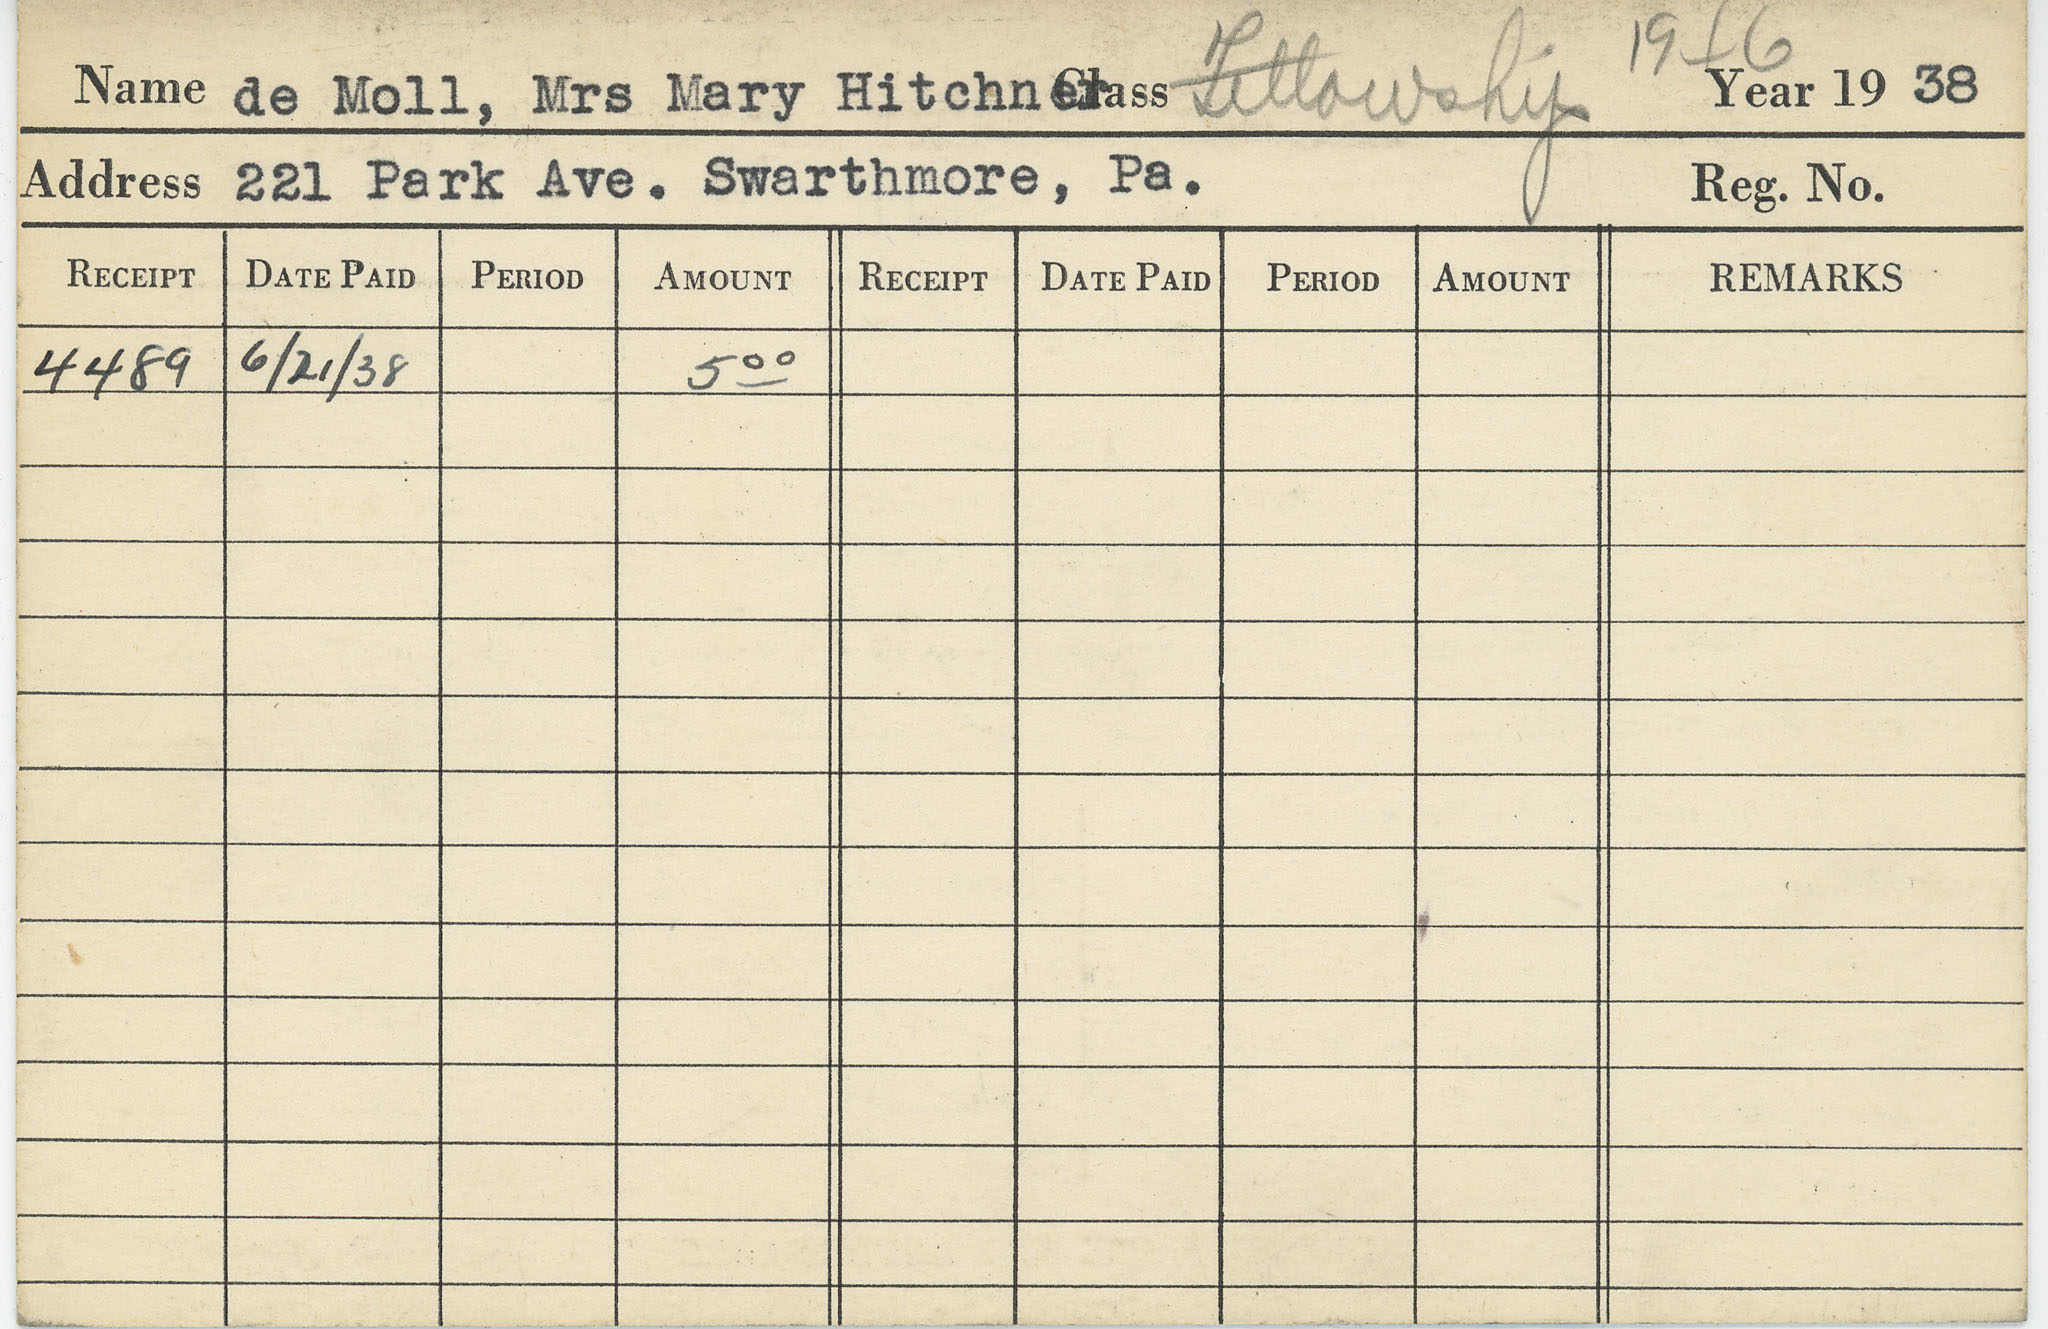 Name de Moll, Mrs Mary Hitchner Class Fellowship Year 19 38
Address 221 Park Ave. Swarthmore, Pa. Reg. No.
RECEIPT DATE PAID PERIOD AMOUNT RECEIPT DATE PAID PERIOD AMOUNT REMARKS
4489 6/21/38 5 00